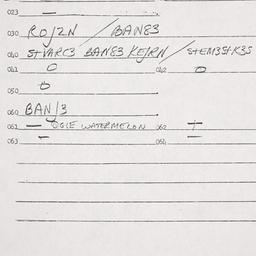 023 —
030 RO/ZN / BAN83
040 STVARC3 BAN83 KE/RN / STEM3St-K3S
041 O 042 O
050 O
060 BAN/3
061 — OGLE WATERMELON 062 +
063 — 064 —